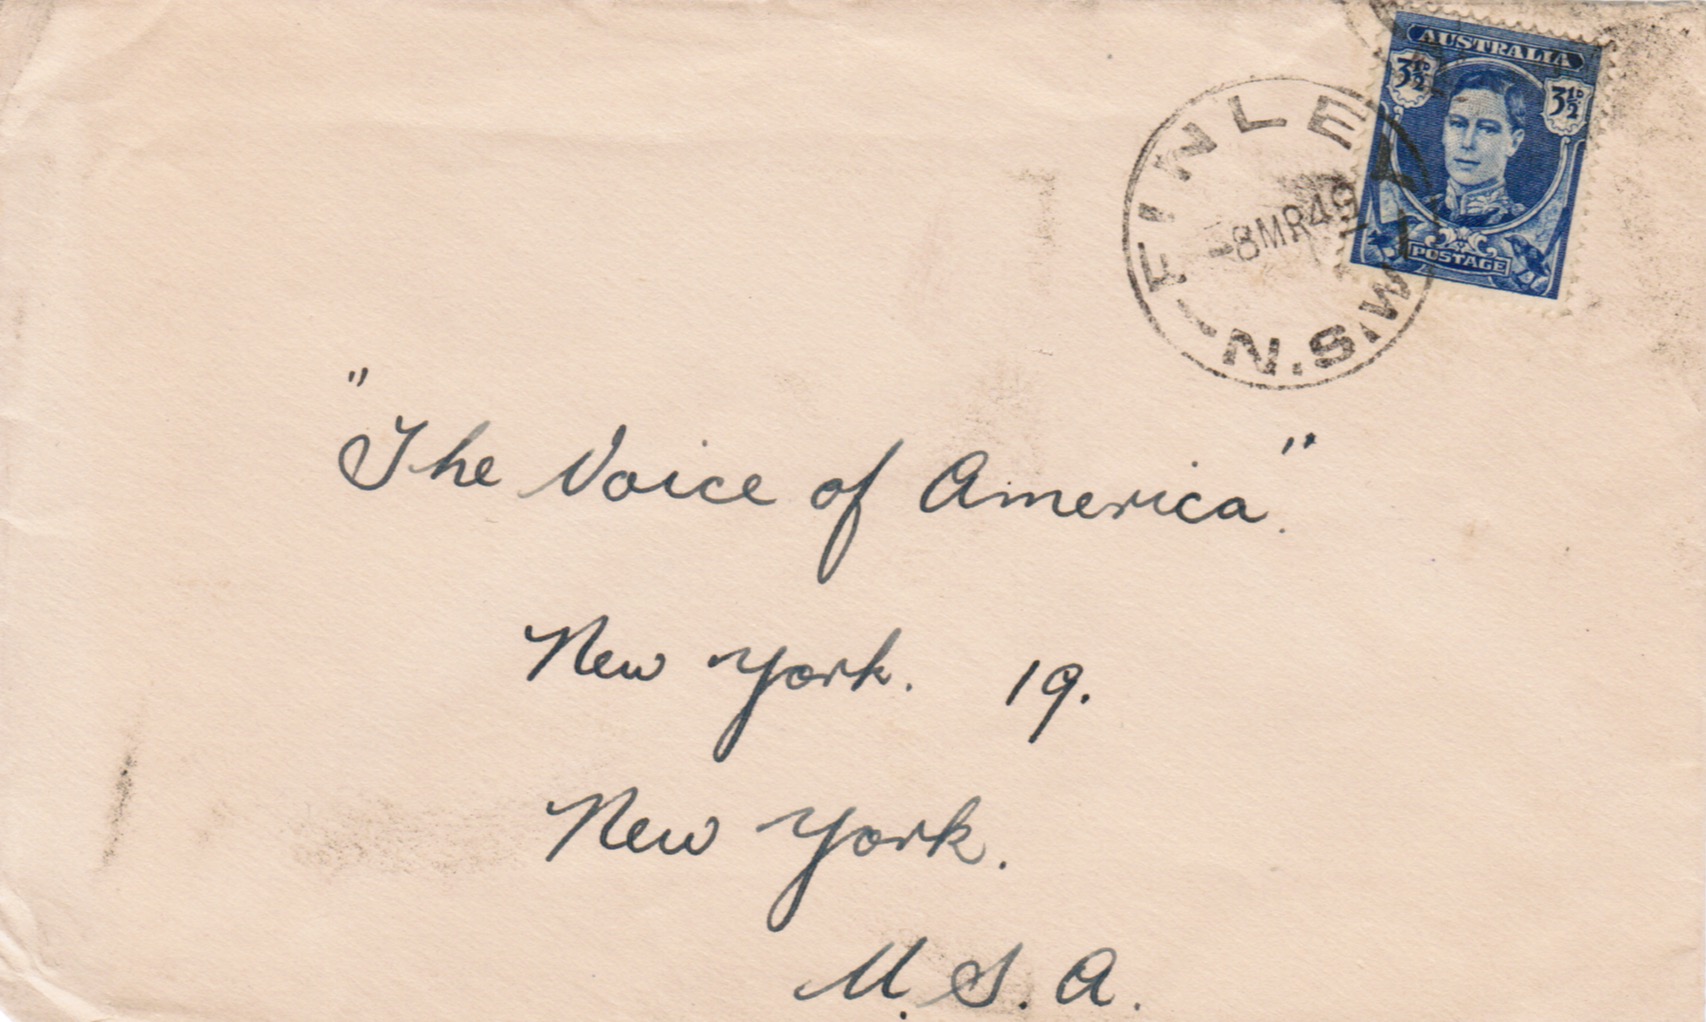 AUSTRALIA
3½D 3½D
POSTAGE
FINLEY
-8MR49
N.S.W
"The Voice of America."
New York. 19.
New York.
U.S.A.